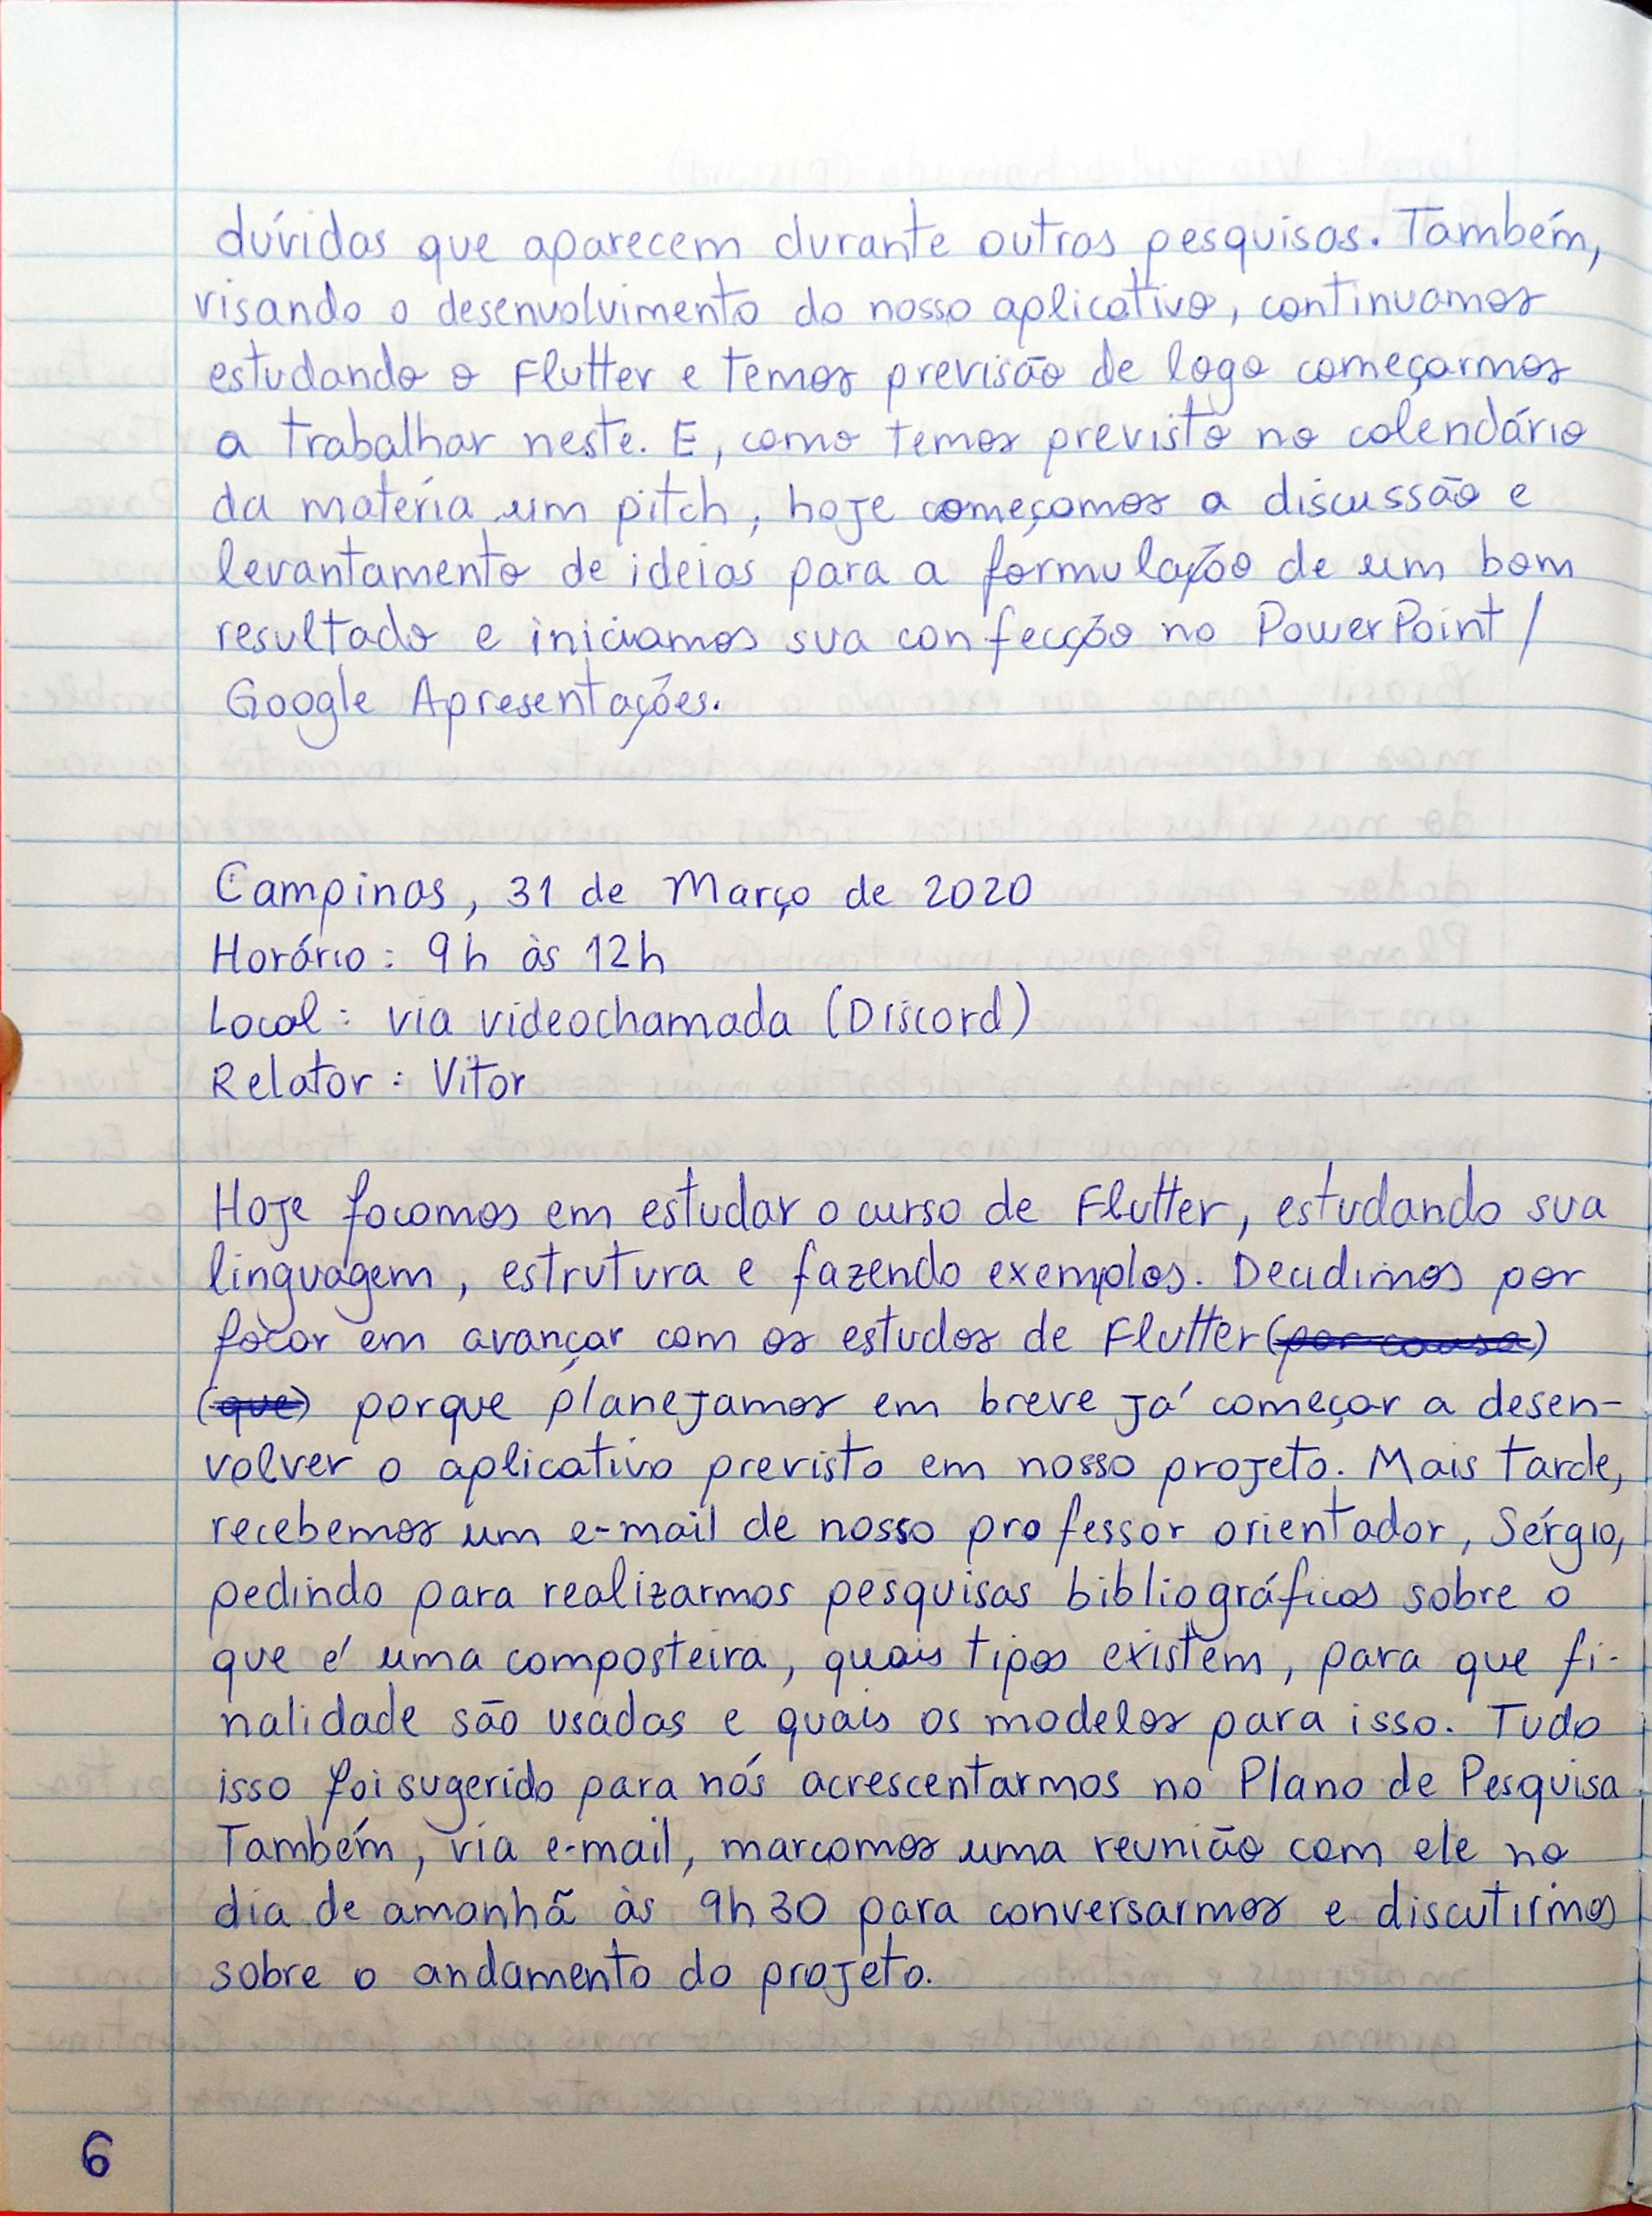 dúvidas que aparecem durante outras pesquisas. Também,
visando o desenvolvimento do nosso aplicativo, continuamos
estudando o Flutter e temos previsão de logo começarmos
a trabalhar neste. E, como temos previsto no calendário
da matéria um pitch, hoje começamos a discussão e
levantamento de ideias para a formulação de um bom
resultado e iniciamos sua confecção no PowerPoint/
Google Apresentações.
Campinas, 31 de Março de 2020
Horário: 9h às 12h
Local: via videochamada (Discord)
Relator: Vitor
Hoje focamos em estudar o curso de Flutter, estudando sua
linguagem, estrutura e fazendo exemplos. Decidimos por
focar em avançar com os estudos de Flutter (por causa)
(que) porque planejamos em breve já começar a desen-
volver o aplicativo previsto em nosso projeto. Mais tarde,
recebemos um e-mail de nosso professor orientador, Sérgio,
pedindo para realizarmos pesquisas bibliográficas sobre o
que é uma composteira, quais tipos existem, para que fi-
nalidade são usadas e quais os modelos para isso. Tudo
isso foi sugerido para nós acrescentarmos no Plano de Pesquisa.
Também, via e-mail, marcamos uma reunião com ele no
dia de amanhã às 9h30 para conversarmos e discutirmos
sobre o andamento do projeto.
6